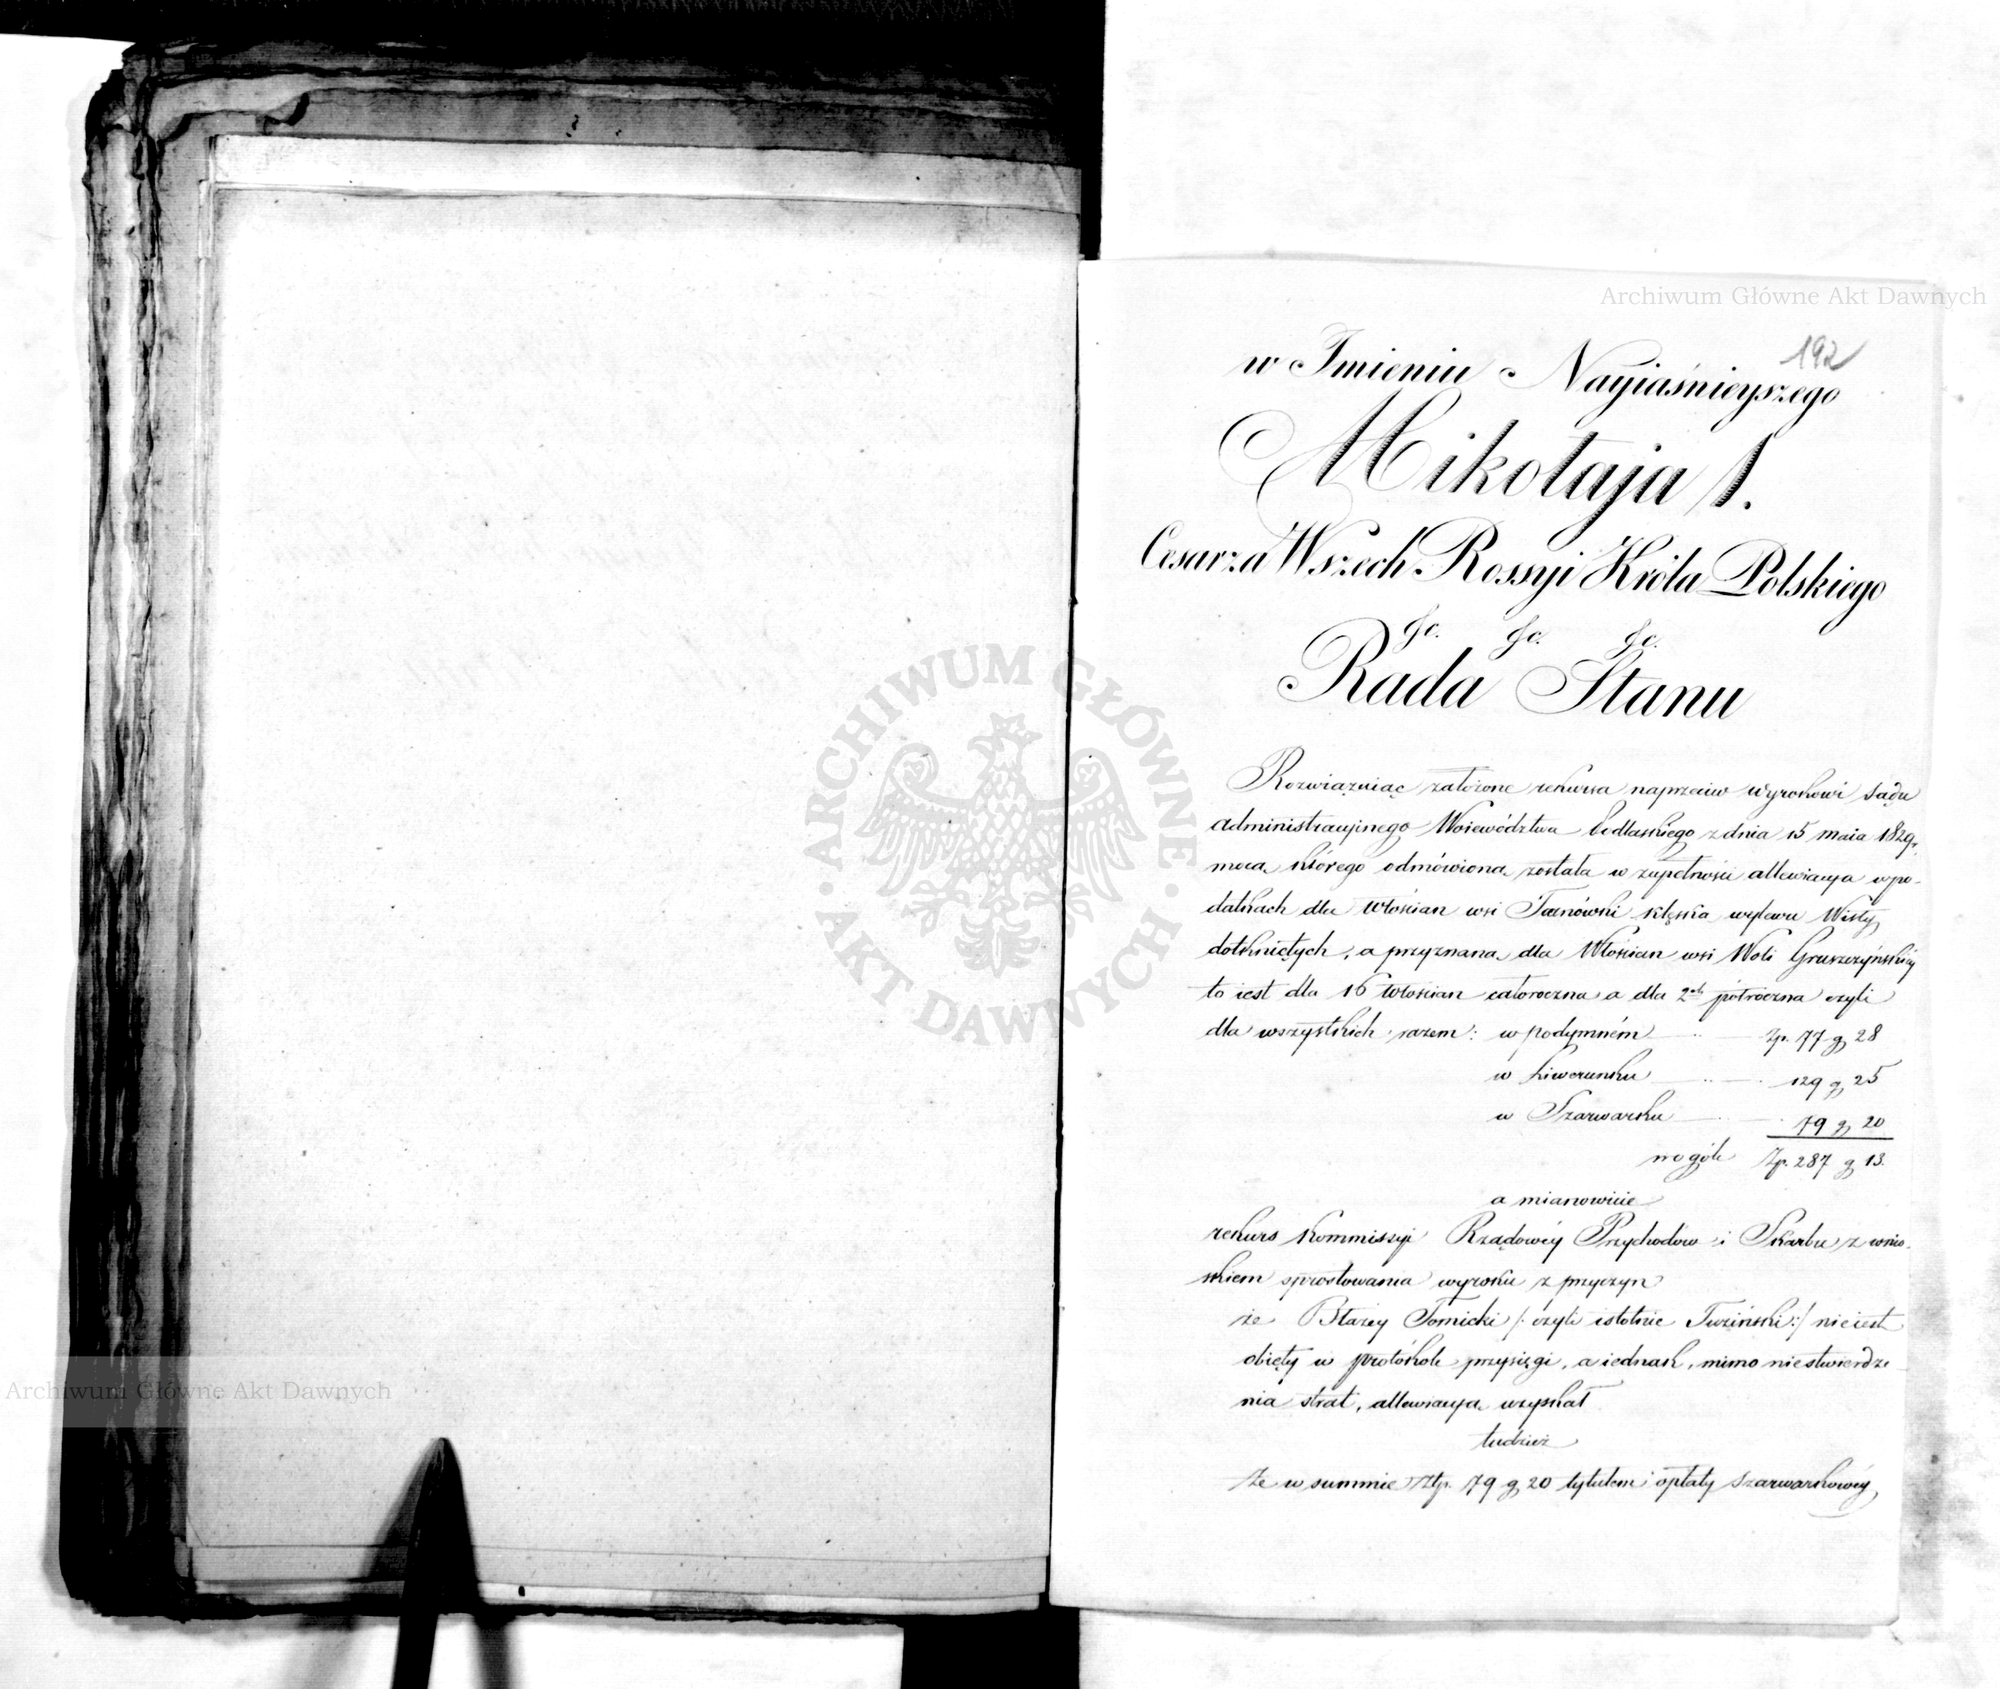 Archiwum Główne Akt Dawnych
192
w Imieniu Nayiaśnieyszego
Mikołaja I.
Cesarza Wszech Rossyi Króla Polskiego
&c. &c. &c.
Rada Stanu
Rozwiązuiąc założone rekursa naprzeciw wyrokowi Sądu
administracyjnego Województwa Podlaskiego z dnia 15 maia 1829 r.
mocą którego odmówioną została w zupełności allewiacya w po-
datkach dla Włościan wsi Tarnówki klęską wylewu Wisły
dotkniętych, a przyznaną dla Włościan wsi Woli Gruszczyńskiey
to iest dla 16 Włościan całoroczna a dla 2ch półroczna czyli
dla wszystkich razem: w podymném Zp. 77 g 28
w Liwerunku 129 g 25
w Szarwarku 79 g 20
w ogóle Zp. 287 g 13.
a mianowicie
rekurs Kommissyi Rządowéy Przychodów i Skarbu z wnio-
skiem sprostowania wyroku z przyczyn
że Błażey Tomicki /: czyli istotnie Tuziński :/ nie iest
obięty w protokole przysięgi, a iednak, mimo niestwierdze
nia strat, allewiacyą uzyskał
tudzież
Że w summie Złp. 79 g 20 tytułem opłaty szarwarkowéy
ARCHIWUM GŁÓWNE
AKT DAWNYCH
Archiwum Główne Akt Dawnych